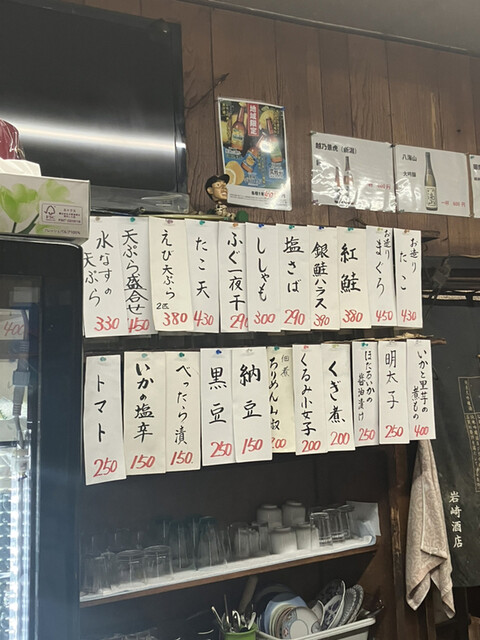 地域限定
越乃景虎(新潟)
八海山
大吟醸
お造り たこ 430
お造り まぐろ 450
紅鮭 380
銀鮭ハラス 390
塩さば 290
ししゃも 300
ふぐ一夜干 290
たこ天 430
えび天ぷら 2匹 380
天ぷら盛合せ 450
水なすの天ぷら 330
いかと里芋の煮もの 400
明太子 250
ほたるいかの醤油漬け 250
くぎ煮 200
くるみ小女子 200
佃煮 ちりめん山椒 200
納豆 150
黒豆 200
べったら漬 150
いかの塩辛 150
トマト 250
400
岩崎酒店